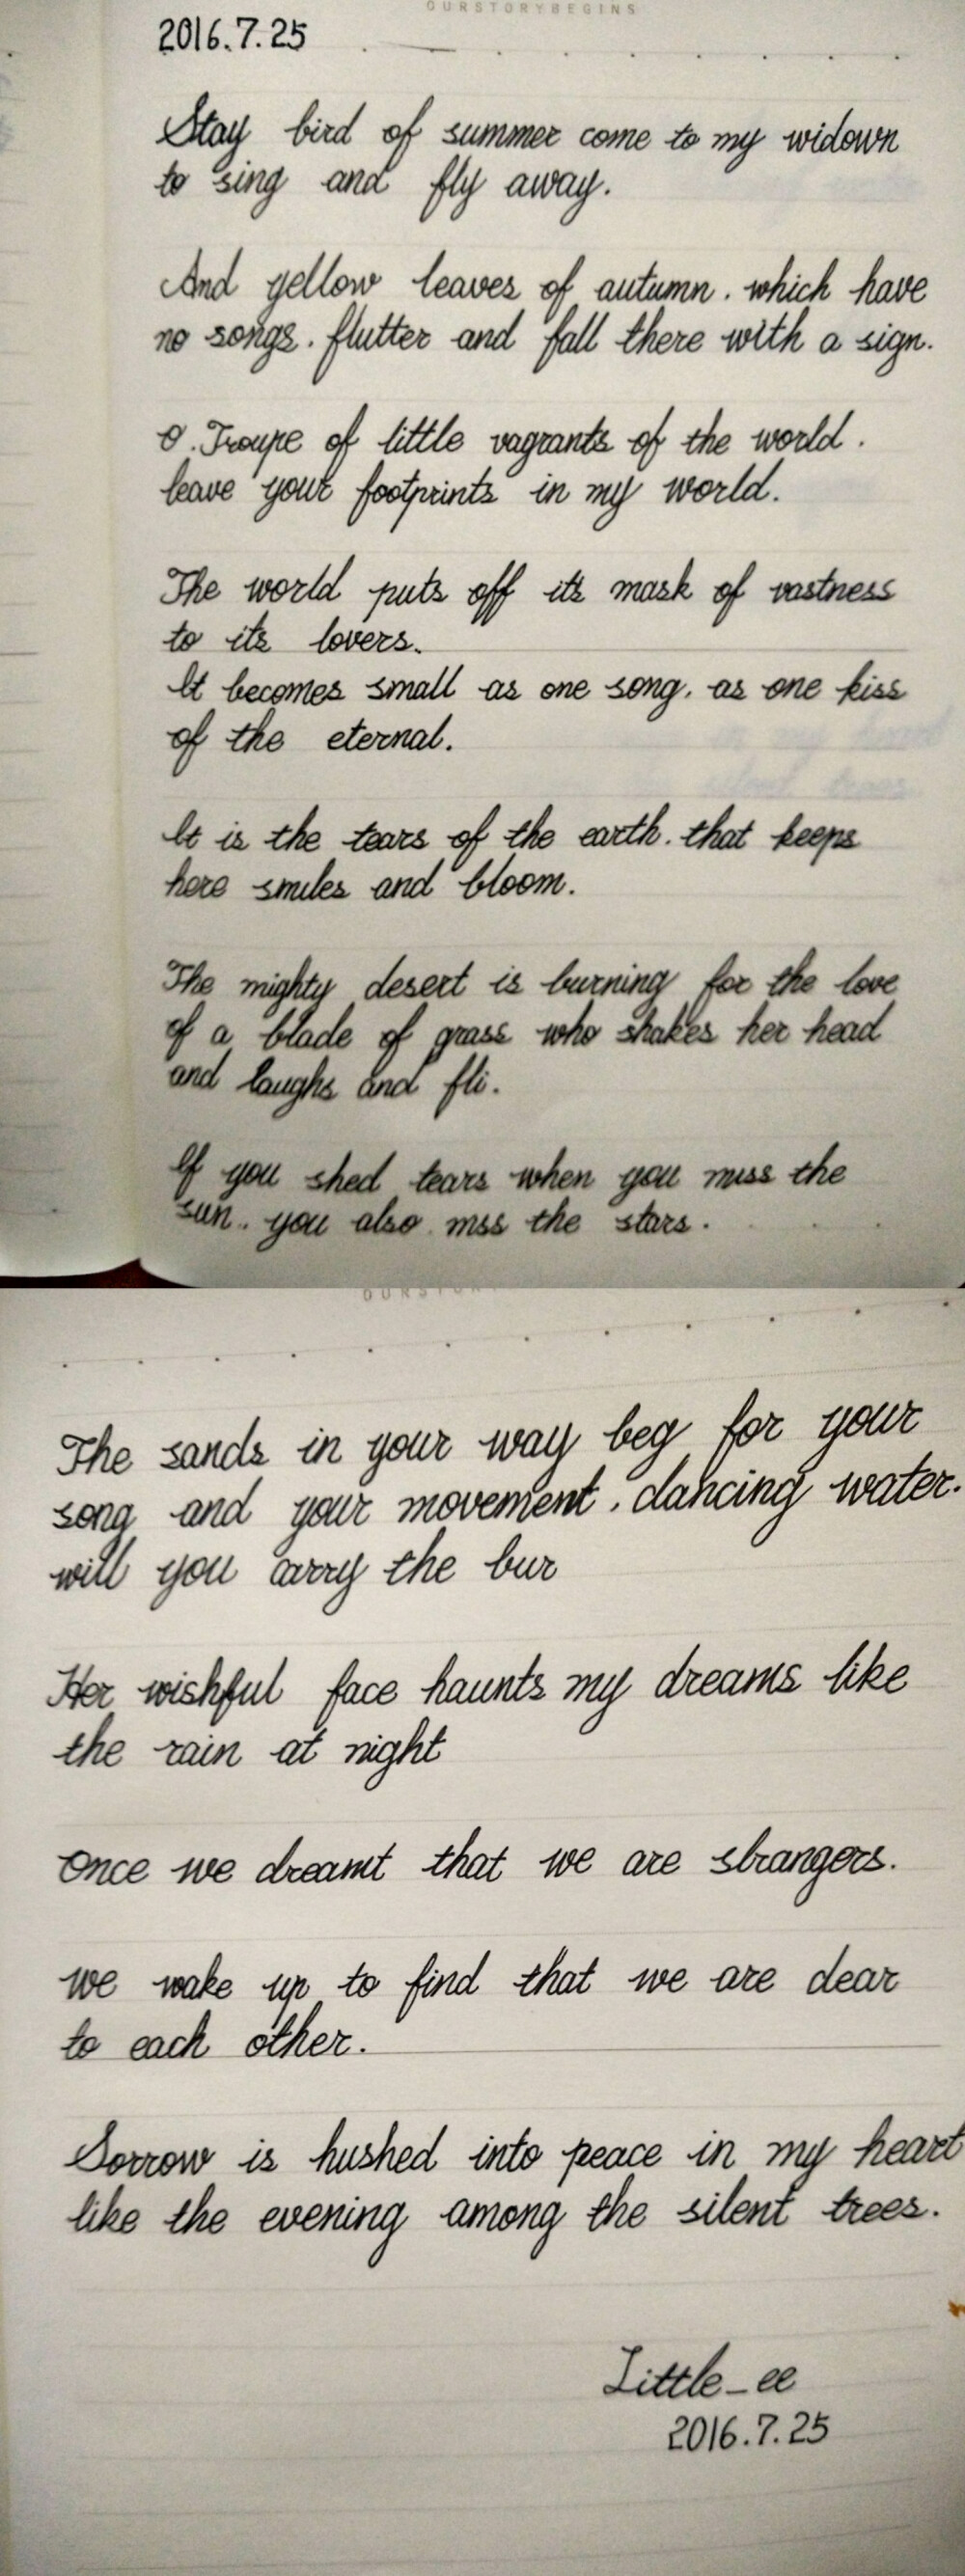 OURSTORYBEGINS
2016.7.25
Stay bird of summer come to my widown
to sing and fly away.
And yellow leaves of autumn. which have
no songs. flutter and fall there with a sign.
O. Troupe of little vagrants of the world.
leave your footprints in my world.
The world puts off its mask of vastness
to its lovers.
It becomes small as one song. as one kiss
of the eternal.
It is the tears of the earth. that keeps
here smiles and bloom.
The mighty desert is burning for the love
of a blade of grass who shakes her head
and laughs and fli.
If you shed tears when you miss the
sun.. you also mss the stars.
The sands in your way beg for your
song and your movement. dancing water.
will you carry the bur
Her wishful face haunts my dreams like
the rain at night
Once we dreamt that we are strangers.
we wake up to find that we are dear
to each other.
Sorrow is hushed into peace in my heart
like the evening among the silent trees.
Little_ee
2016.7.25